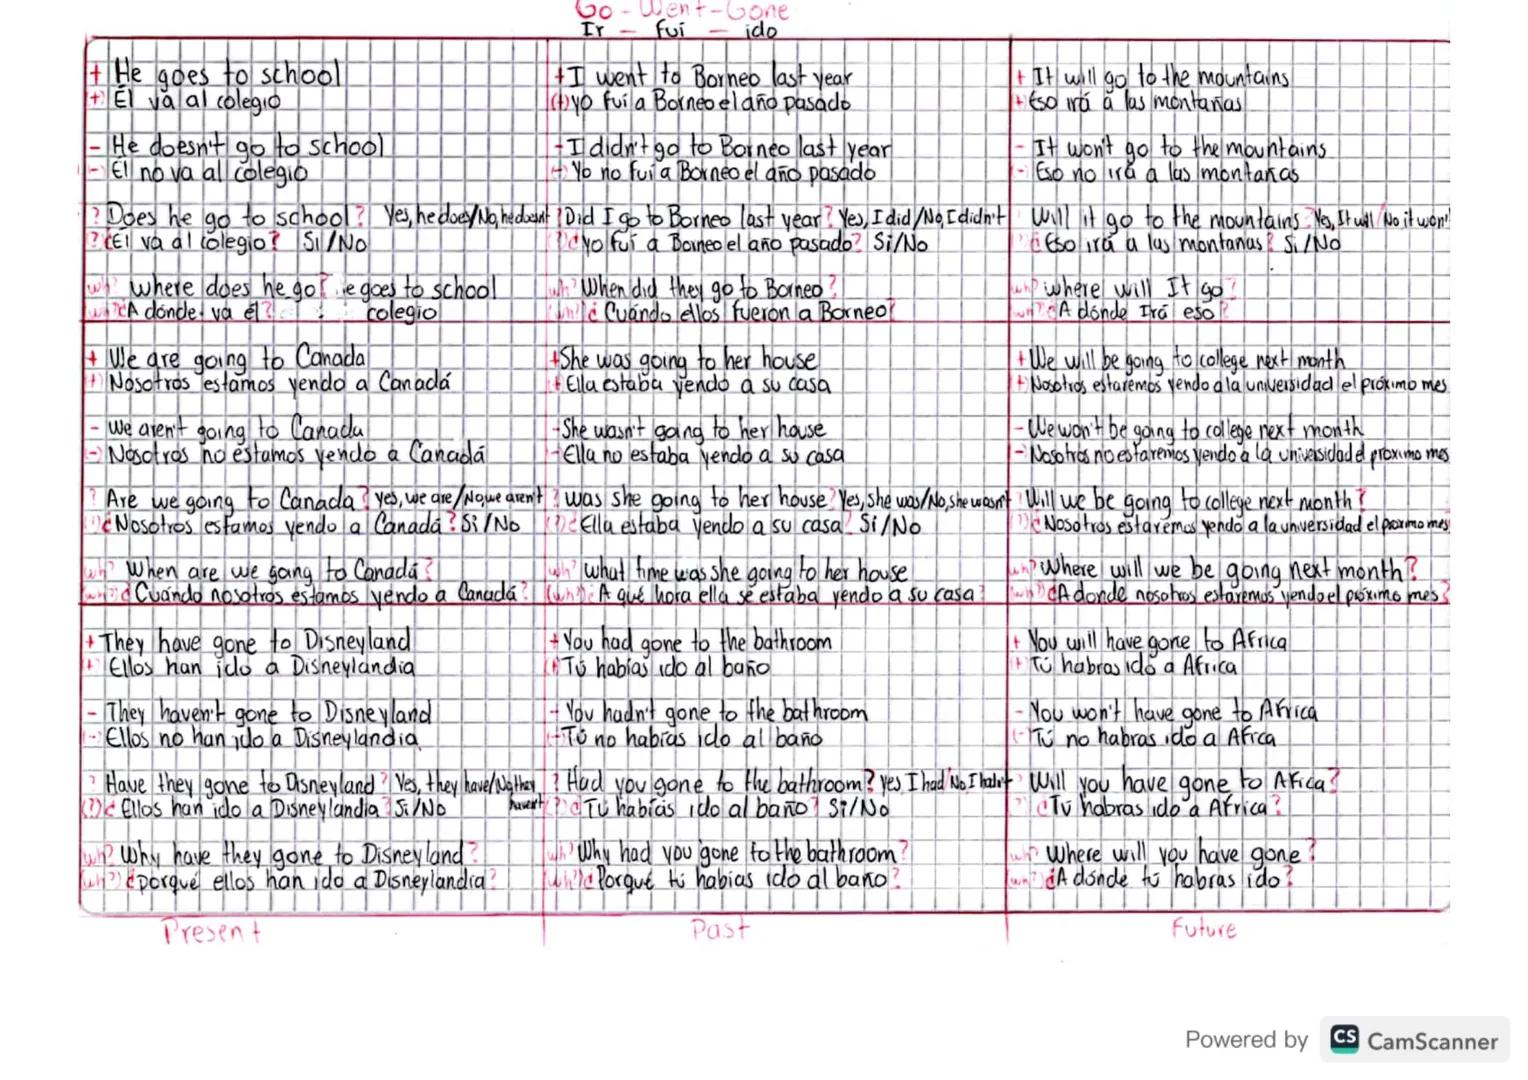 Go - Went - Gone
Ir - fui - ido
+ He goes to school
(+) Él va al colegio
- He doesn't go to school
(-) Él no va al colegio
? Does he go to school? Yes, he does/No, he doesn't
(?) ¿Él va al colegio? Si/No
wh? where does he go? e goes to school
(wh?) ¿A donde va él? colegio
+ I went to Borneo last year
(+) yo fui a Borneo el año pasado
- I didn't go to Borneo last year
(-) Yo no fui a Borneo el año pasado
? Did I go to Borneo last year? Yes, I did/No, I didn't
(?) ¿yo fui a Borneo el año pasado? Si/No
wh? When did they go to Borneo?
(wh?) ¿Cuándo ellos fueron a Borneo?
+ It will go to the mountains
(+) Eso irá a las montañas
- It won't go to the mountains
(-) Eso no irá a las montañas
Will it go to the mountains? Yes, It will/No it won't
(?) ¿Eso irá a las montañas? Si/No
wh? where will It go?
(wh?) ¿A dónde Irá eso?
+ We are going to Canada
(+) Nosotros estamos yendo a Canadá
- we aren't going to Canada
(-) Nosotros no estamos yendo a Canadá
? Are we going to Canada? yes, we are/No, we aren't
(?) ¿Nosotros estamos yendo a Canadá? Si/No
wh? When are we going to Canadá?
(wh?) ¿Cuándo nosotros estamos yendo a Canadá?
+ She was going to her house
(+) Ella estaba yendo a su casa
- She wasn't going to her house
(-) Ella no estaba yendo a su casa
? was she going to her house? Yes, she was/No, she wasn't
(?) ¿Ella estaba yendo a su casa? Si/No
wh? what time was she going to her house
(wh?) ¿A qué hora ella se estaba yendo a su casa?
+ We will be going to college next month
(+) Nosotros estaremos yendo a la universidad el próximo mes
- We won't be going to college next month
- Nosotros no estaremos yendo a la universidad el proximo mes
? Will we be going to college next month?
(?) ¿Nosotros estaremos yendo a la universidad el proximo mes
wh? Where will we be going next month?
(wh?) ¿A donde nosotros estaremos yendo el próximo mes?
+ They have gone to Disneyland
(+) Ellos han ido a Disneylandia
- They haven't gone to Disneyland
(-) Ellos no han ido a Disneylandia
? Have they gone to Disneyland? Yes, they have/No they haven't
(?) ¿Ellos han ido a Disneylandia? Si/No
wh? Why have they gone to Disneyland?
(wh?) ¿porqué ellos han ido a Disneylandia?
+ You had gone to the bathroom
(+) Tú habías ido al baño
- You hadn't gone to the bathroom
(-) Tú no habías ido al baño
? Had you gone to the bathroom? yes I had/No I hadn't
(?) ¿Tú habías ido al baño? Si/No
wh? Why had you gone to the bathroom?
(wh?) ¿Porqué tú habias ido al baño?
+ You will have gone to Africa
(+) Tú habras ido a Africa
- You won't have gone to Africa
(-) Tú no habras ido a Africa
? Will you have gone to Africa?
? ¿Tú habras ido a Africa?
wh? Where will you have gone?
(wh?) ¿A dónde tú habras ido?
Present Past Future
Powered by CS CamScanner